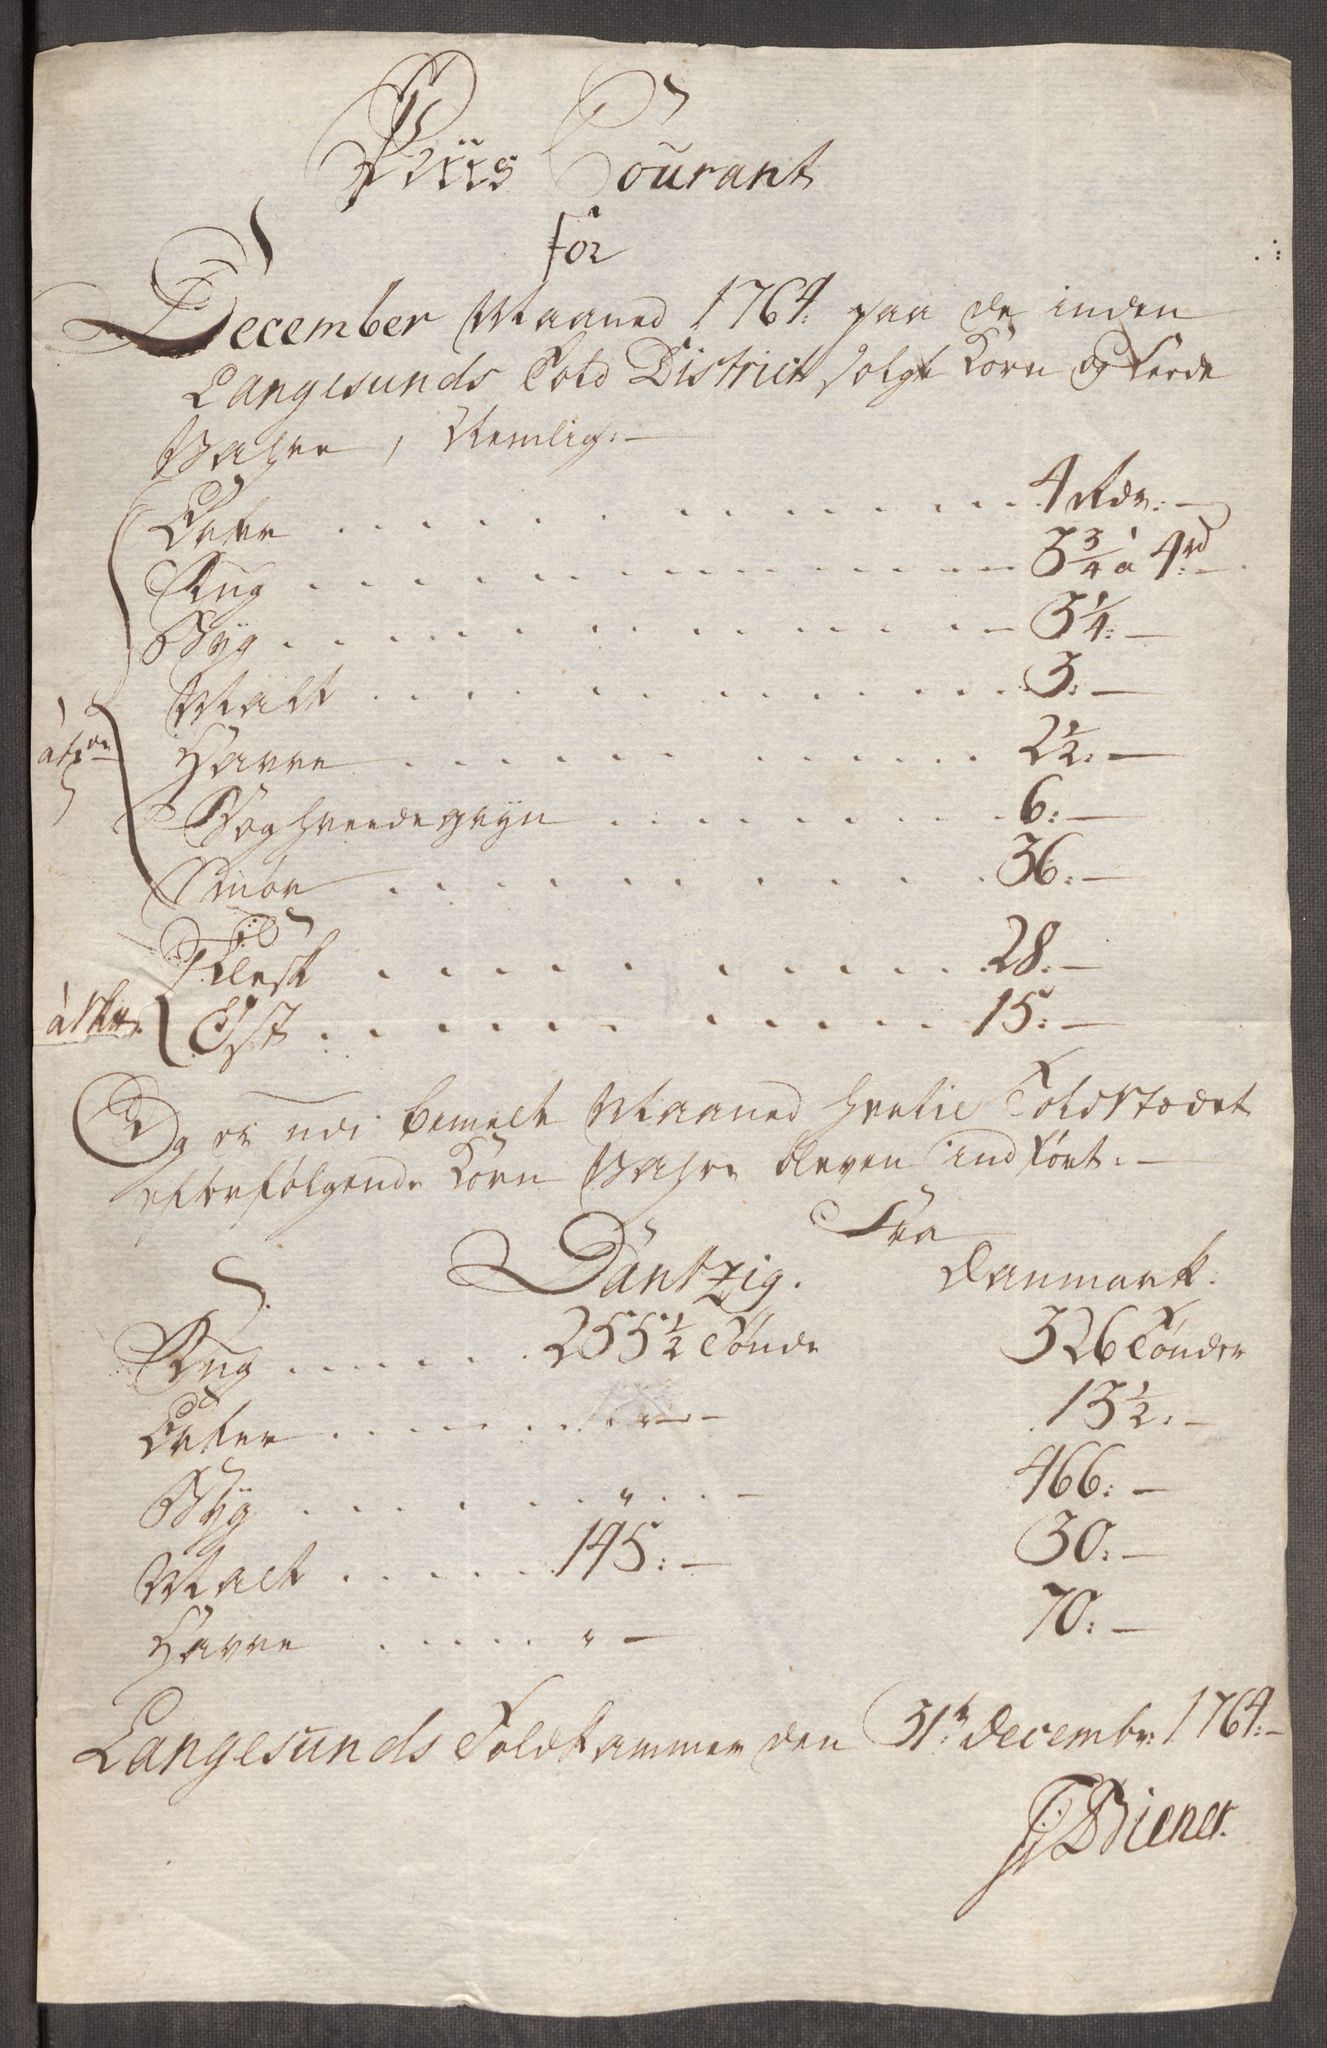 Priis Courant
for
December Maaned 1764. paa de inden
Langesunds Told District solgt Korn og Fede
Vahre, Nemlig:
Erter . . . 4 Rdr:
Rug . . . 3 3/4 à 4 rd:
Byg . . . 3 1/4:
Malt . . . 3:
à tde Havre . . . 2 1/2:
Boghveedegryn . . . 6:
Smør . . . 36:
Flesk . . . 28:
Ost . . . 15:
Og er udi bemelte Maaned her til Toldstædet
efterfølgende Korn Vahre bleven indført:
Fra
Dantzig. Danmark.
Rug . . . 255 1/2 Tønde 326 Tønder
Erter . . . " 13 1/2:
Byg . . . " 466:
Malt . . . 145: 30:
Havre . . . " 70:
Langesunds Toldkammer den 31te Decembr: 1764:
Biener.